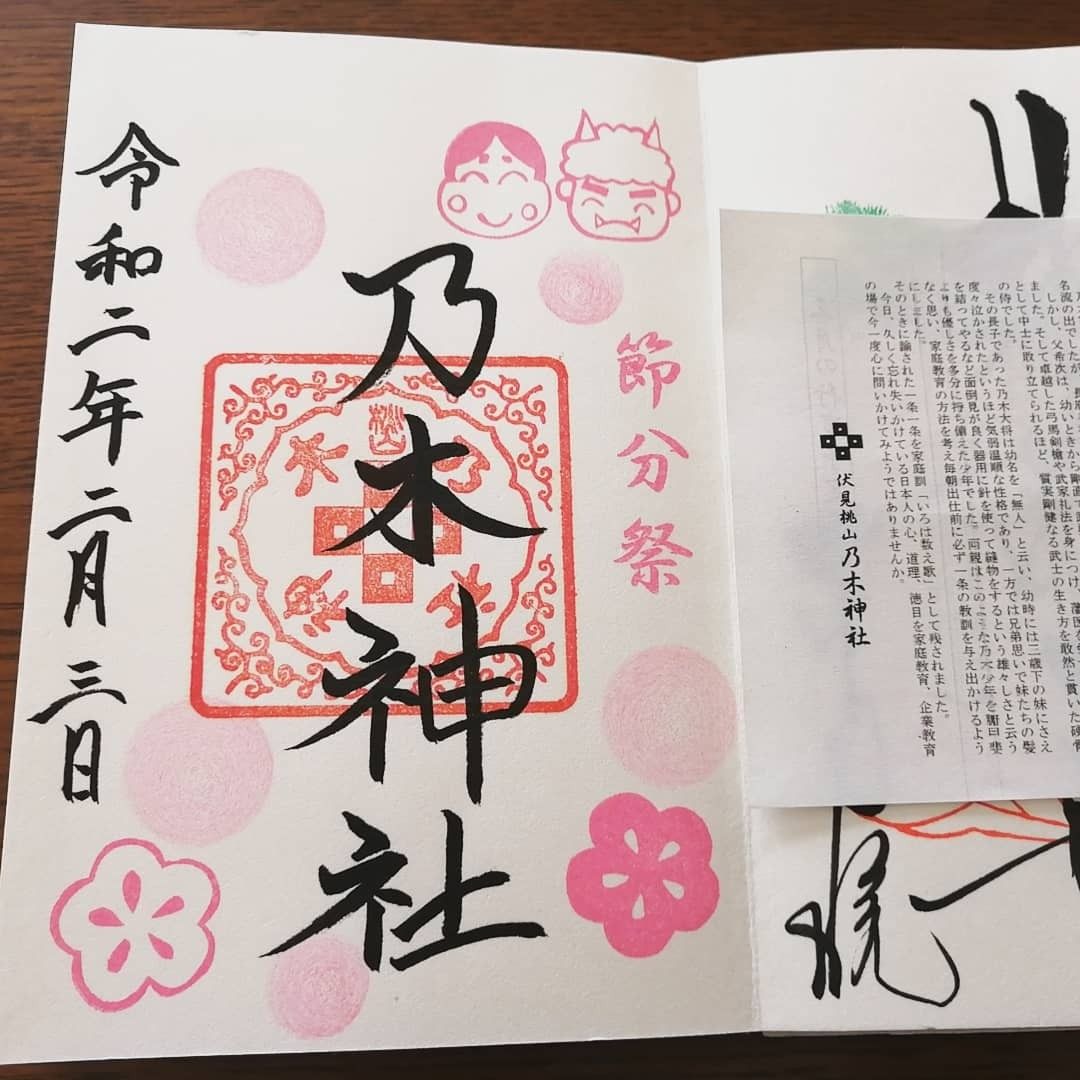 名流の出でしたが、長府
しかし、父希次は、幼いときから剛直で
ました。そして卓越した弓馬剣槍や武家礼法を身につけ、
として中士に取り立てられるほど、質実剛健なる武士の生き方を敢然と貫いた硬骨
の侍でした。
その長子であった乃木大将は幼名を「無人」と云い、幼時には三歳下の妹にさえ
度々泣かされたというほど気弱温順な性格であり、一方では兄弟思いで妹たちの髪
を結ってやるなど面倒見が良く器用に針を使って縫物をするという雄々しさと云う
よりも優しさを多分に持ち備えた少年でした。両親はこのような乃木少年を腑甲斐
なく思い、家庭教育の方法を考え毎朝出仕前に必ず一条の教訓を与え出かけるよう
にしました。
そのときに諭された一条一条を家庭訓「いろは数え歌」として残されました。
今日、久しく忘れ失いかけている日本人の心、道理、徳目を家庭教育、企業教育
の場で今一度心に問いかけてみようではありませんか。
伏見桃山乃木神社
節分祭
乃木神社
令和二年二月三日